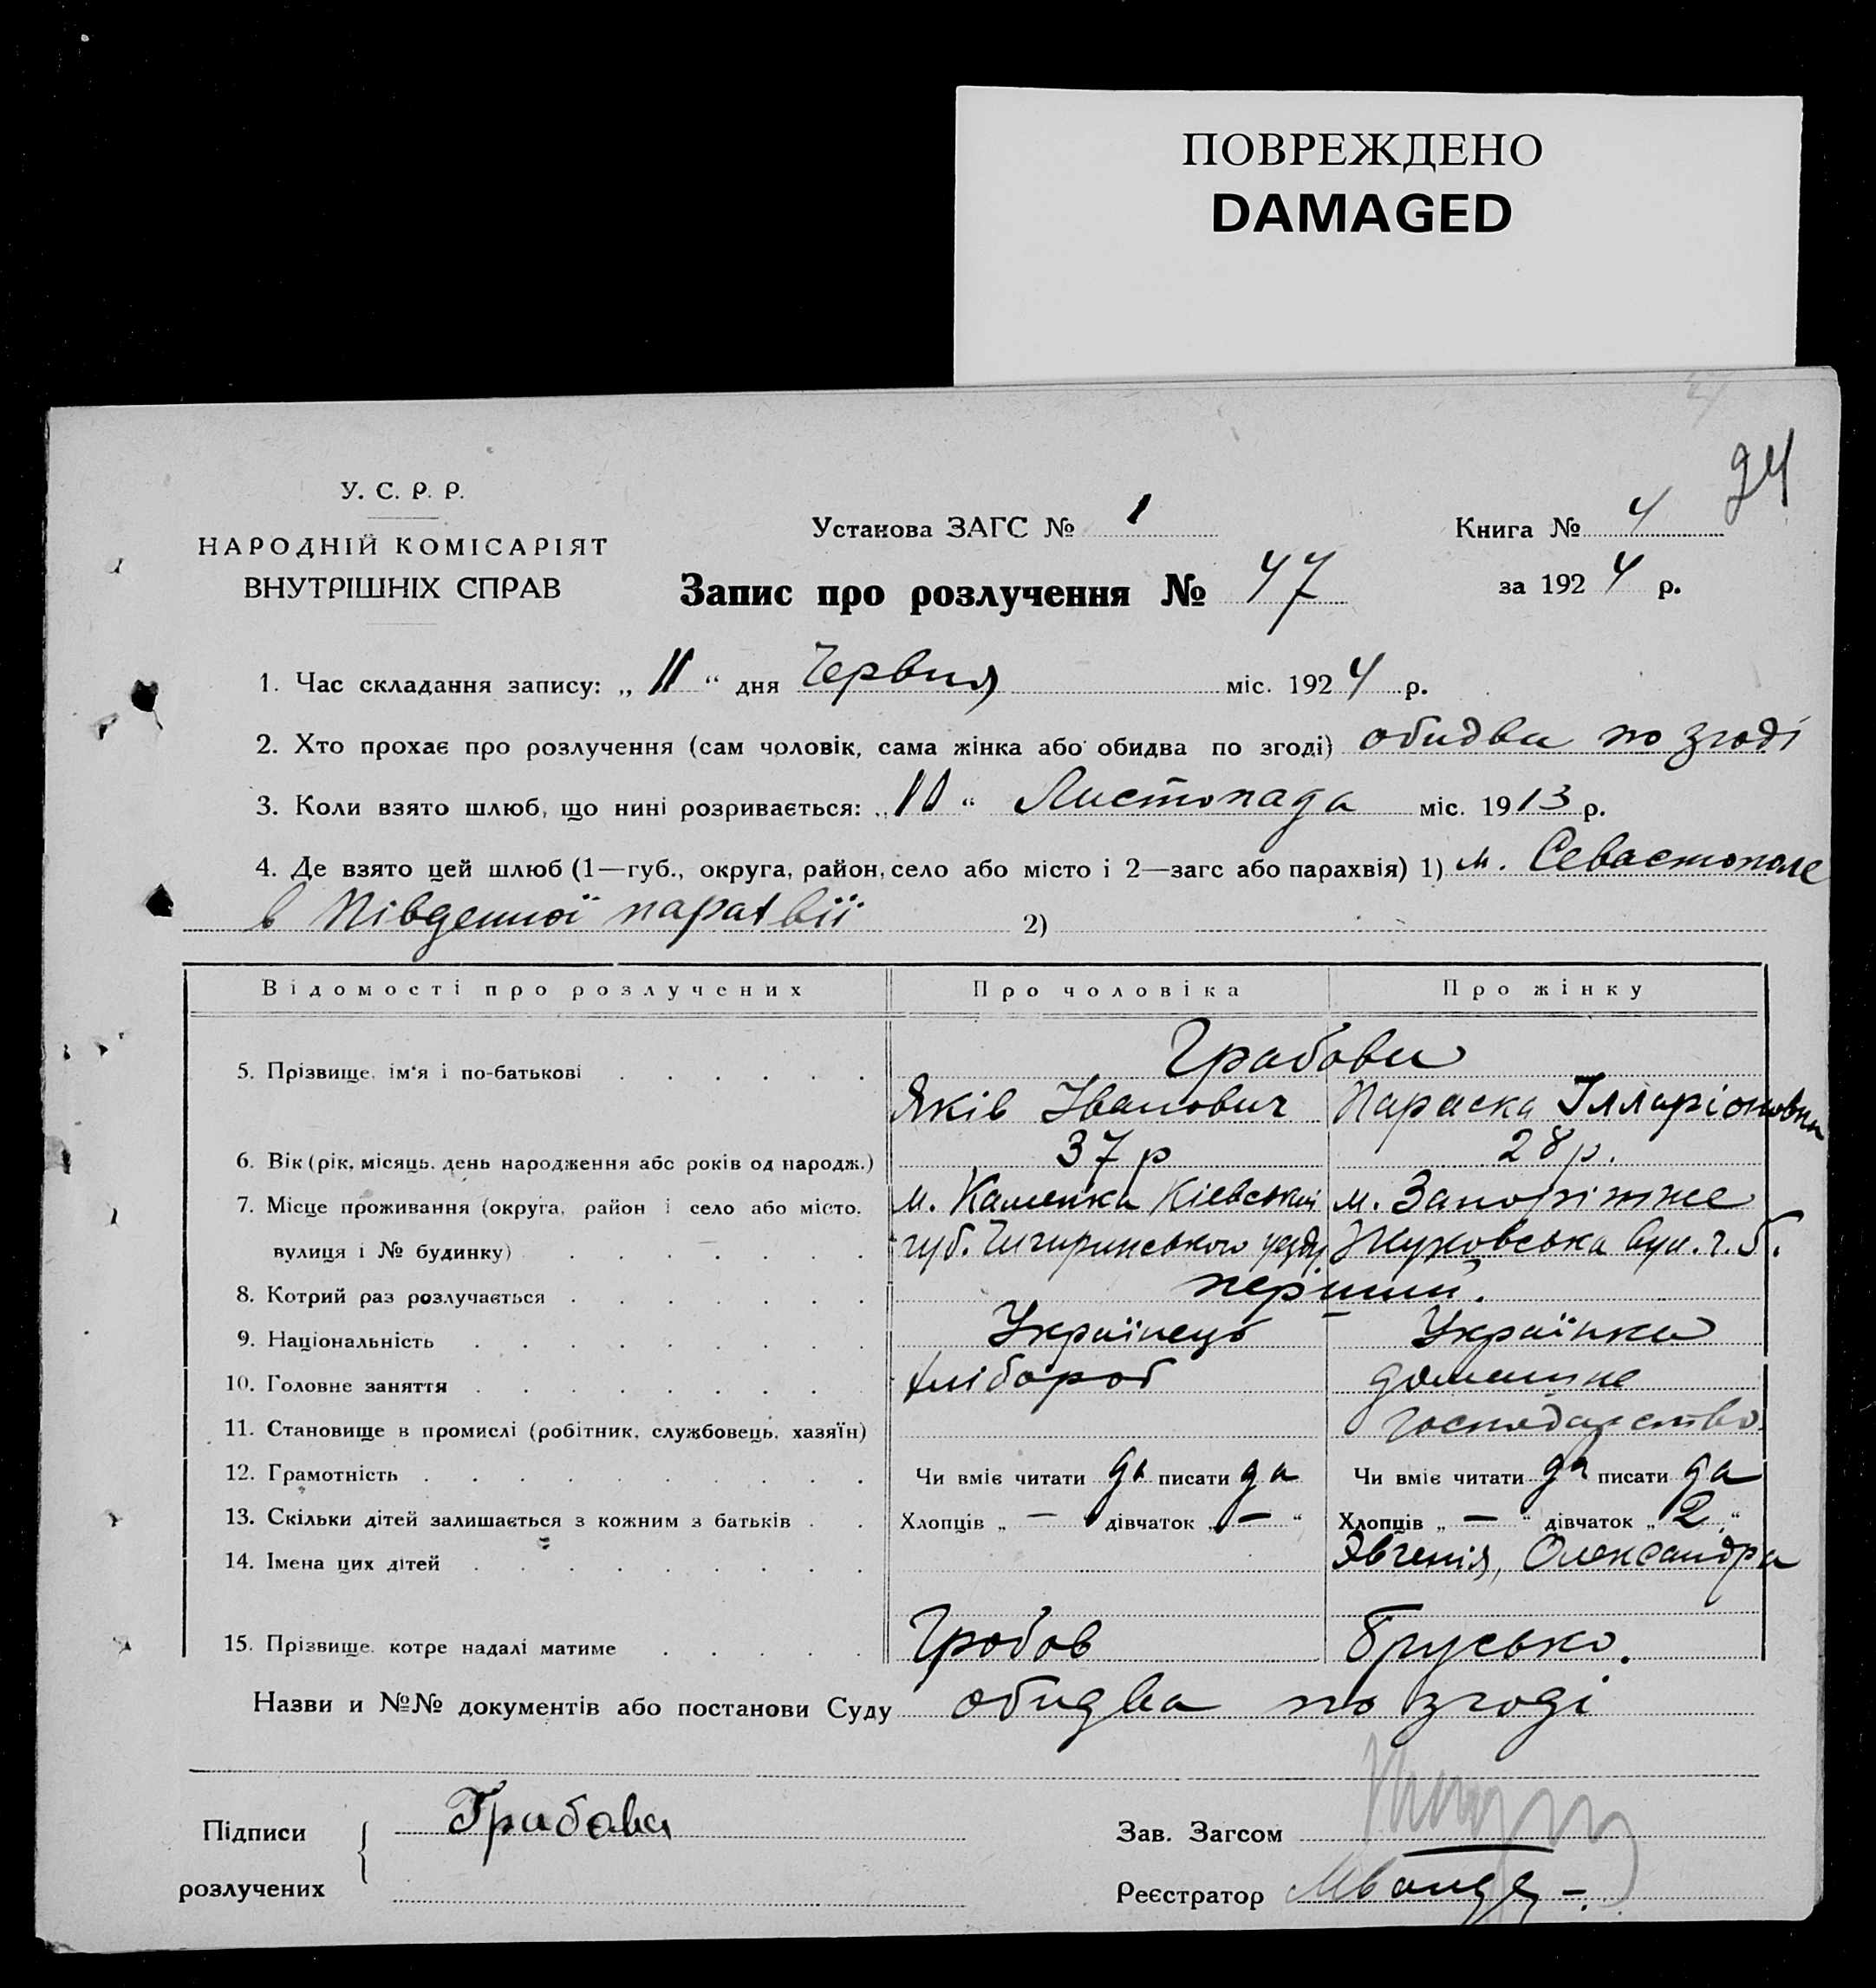 ПОВРЕЖДЕНО
DAMAGED
24
У. С. Р. Р.
НАРОДНІЙ КОМІСАРІЯТ
ВНУТРІШНІХ СПРАВ
Установа ЗАГС № 1
Книга № 4
Запис про розлучення № 47
за 1924 р.
1. Час складання запису: „ 11 “ дня Червня міс. 1924 р.
2. Хто прохає про розлучення (сам чоловік, сама жінка або обидва по згоді) обидва по згоді
3. Коли взято шлюб, що нині розривається: „ 10 “ Листопада міс. 1913 р.
4. Де взято цей шлюб (1—губ., округа, район, село або місто і 2—загс або парахвія) 1) м. Севастополе
в Південної парахвії 2)
Відомості про розлучених Про чоловіка Про жінку
Грабови
5. Прізвище, ім‘я і по-батькові . . . . . . Яків Іванович Параска Ілларіоновна
6. Вік (рік, місяць, день народження або років од народж.) 37 р 28 р.
7. Місце проживання (округа, район і село або місто, м. Каменка Кіевській м. Запоріжже
вулиця і № будинку) . . . . . . . губ. Чигиринського уезду Жуковська вул. ч. 5.
8. Котрий раз розлучається . . . . . . . перший.
9. Національність . . . . . . . . . Українець Українка
10. Головне заняття . . . . . . . . хлібороб домашне
11. Становище в промислі (робітник, службовець, хазяїн) господарство
12. Грамотність . . . . . . . . . . Чи вміє читати да писати да Чи вміє читати да писати да
13. Скільки дітей залишається з кожним з батьків . . Хлопців „ — “ дівчаток „ — “ Хлопців „ — “ дівчаток „ 2 “
14. Імена цих дітей . . . . . . . . . Явгенія, Олександра
15. Прізвище, котре надалі матиме . . . . . Гробов Брусько.
Назви и №№ документів або постанови Суду обидва по згоді
Підписи Грабова
розлучених
Зав. Загсом
Реєстратор